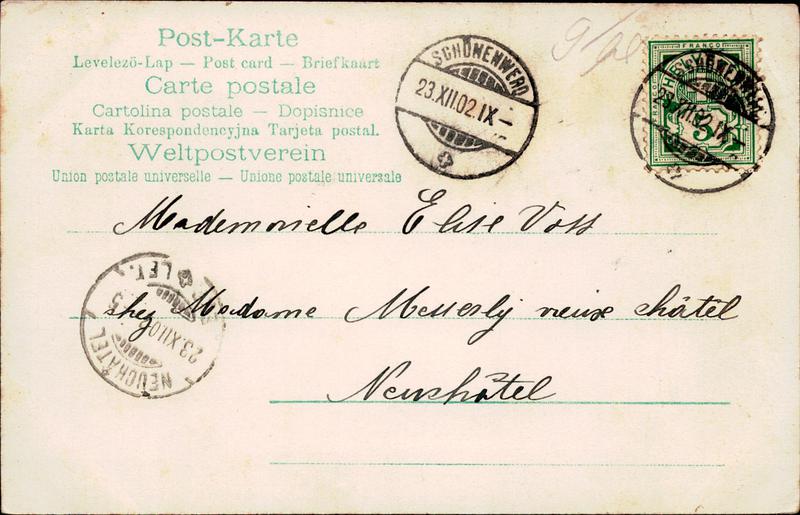 Post-Karte
Levelező-Lap — Post card — Briefkaart
Carte postale
Cartolina postale — Dopisnice
Karta Korespondencyjna Tarjeta postal.
Weltpostverein
Union postale universelle — Unione postale universale
SCHÖNENWERD
23.XII.02.IX–
FRANCO
5
Mademoiselle Elise Voss
chez Madame Messerly vieux châtel
Neuchâtel
NEUCHÂTEL
23.XII.02
LET.